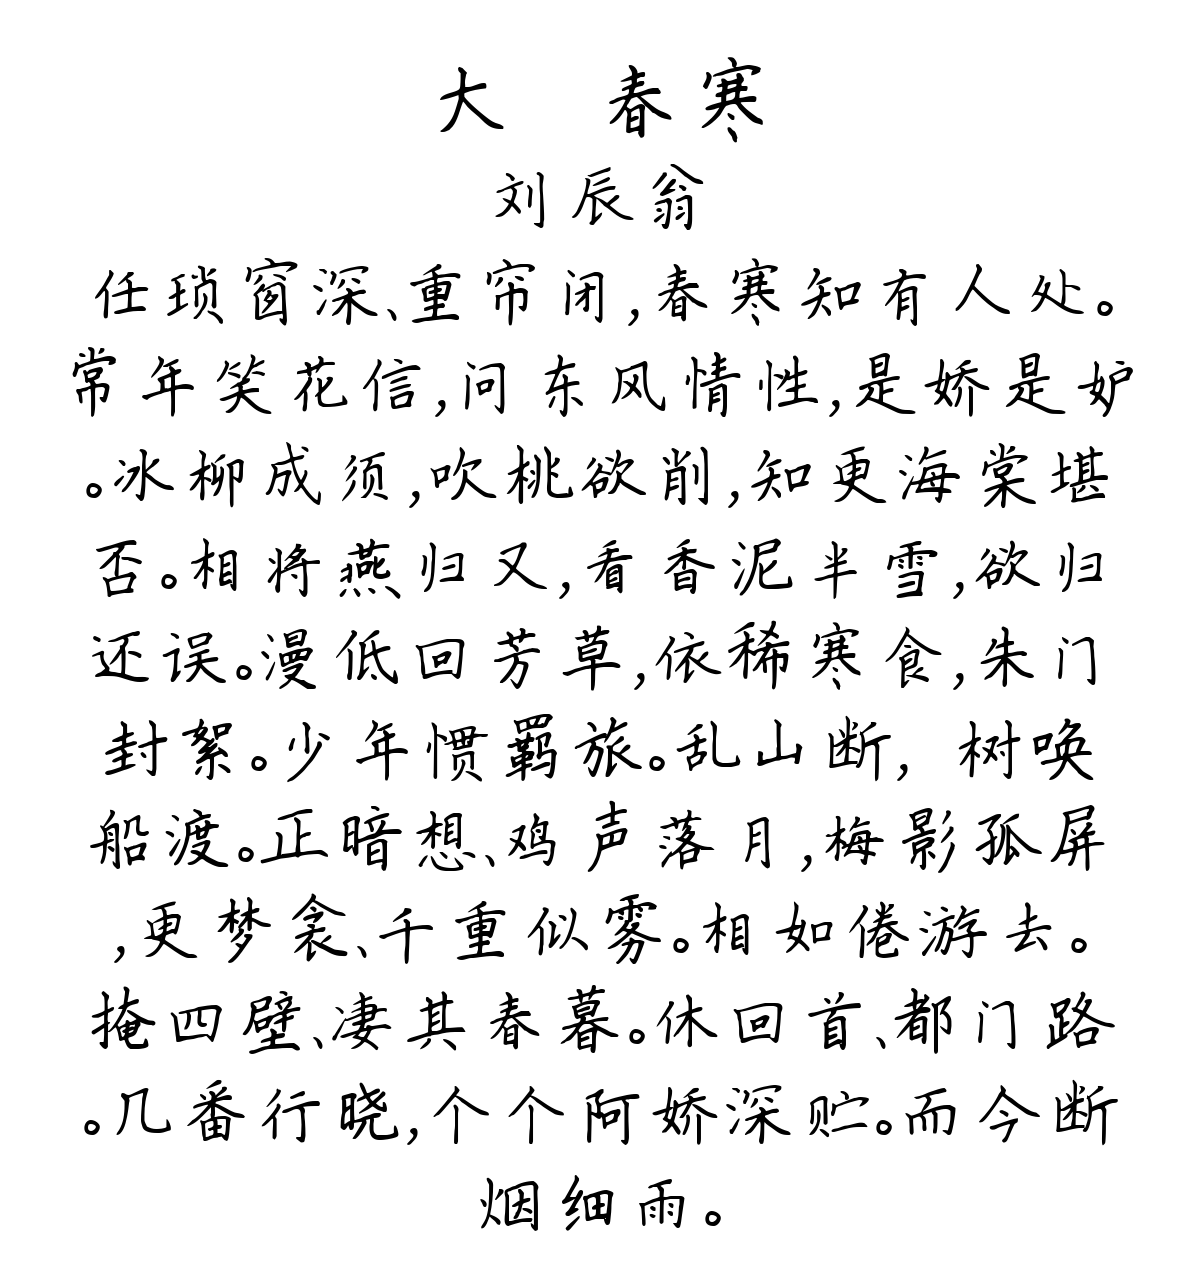 大　春寒
刘辰翁
任琐窗深、重帘闭,春寒知有人处。
常年笑花信,问东风情性,是娇是妒
。冰柳成须,吹桃欲削,知更海棠堪
否。相将燕归又,看香泥半雪,欲归
还误。漫低回芳草,依稀寒食,朱门
封絮。少年惯羁旅。乱山断, 树唤
船渡。正暗想、鸡声落月,梅影孤屏
,更梦衾、千重似雾。相如倦游去。
掩四壁、凄其春暮。休回首、都门路
。几番行晓,个个阿娇深贮。而今断
烟细雨。